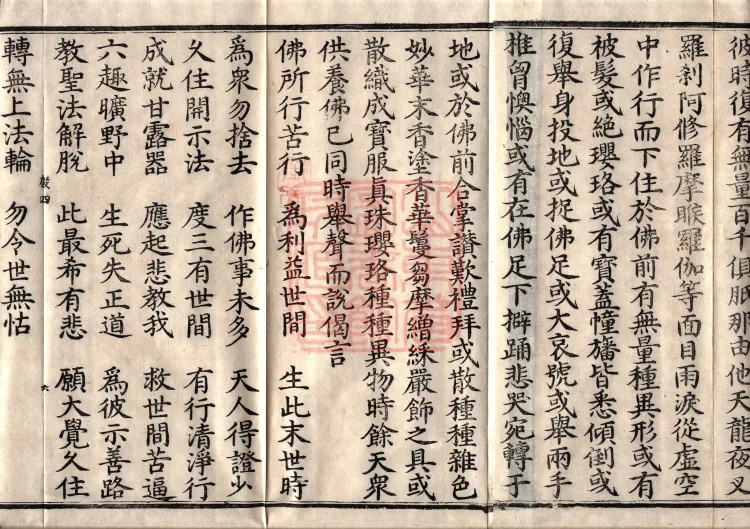 彼時復有無量百千俱胝那由他天龍夜叉
羅剎阿修羅摩睺羅伽等面目雨淚從虛空
中作行而下住於佛前有無量種異形或有
被髮或絕瓔珞或有寶蓋幢旛皆悉傾倒或
復舉身投地或捉佛足或大哀號或舉兩手
椎胷懊惱或有在佛足下擗踊悲哭宛轉于
地或於佛前合掌讚歎禮拜或散種種雜色
妙華末香塗香華鬘芻摩繒綵嚴飾之具或
散織成寶服眞珠瓔珞種種異物時餘天衆
供養佛已同時舉聲而說偈言
佛所行苦行 爲利益世間 生此末世時
爲衆勿捨去 作佛事未多 天人得證少
久住開示法 度三有世間 有行清淨行
成就甘露器 應起悲教我 救世間苦逼
六趣曠野中 生死失正道 爲彼示善路
教聖法解脫 此最希有悲 願大覺久住
轉無上法輪 勿令世無怙